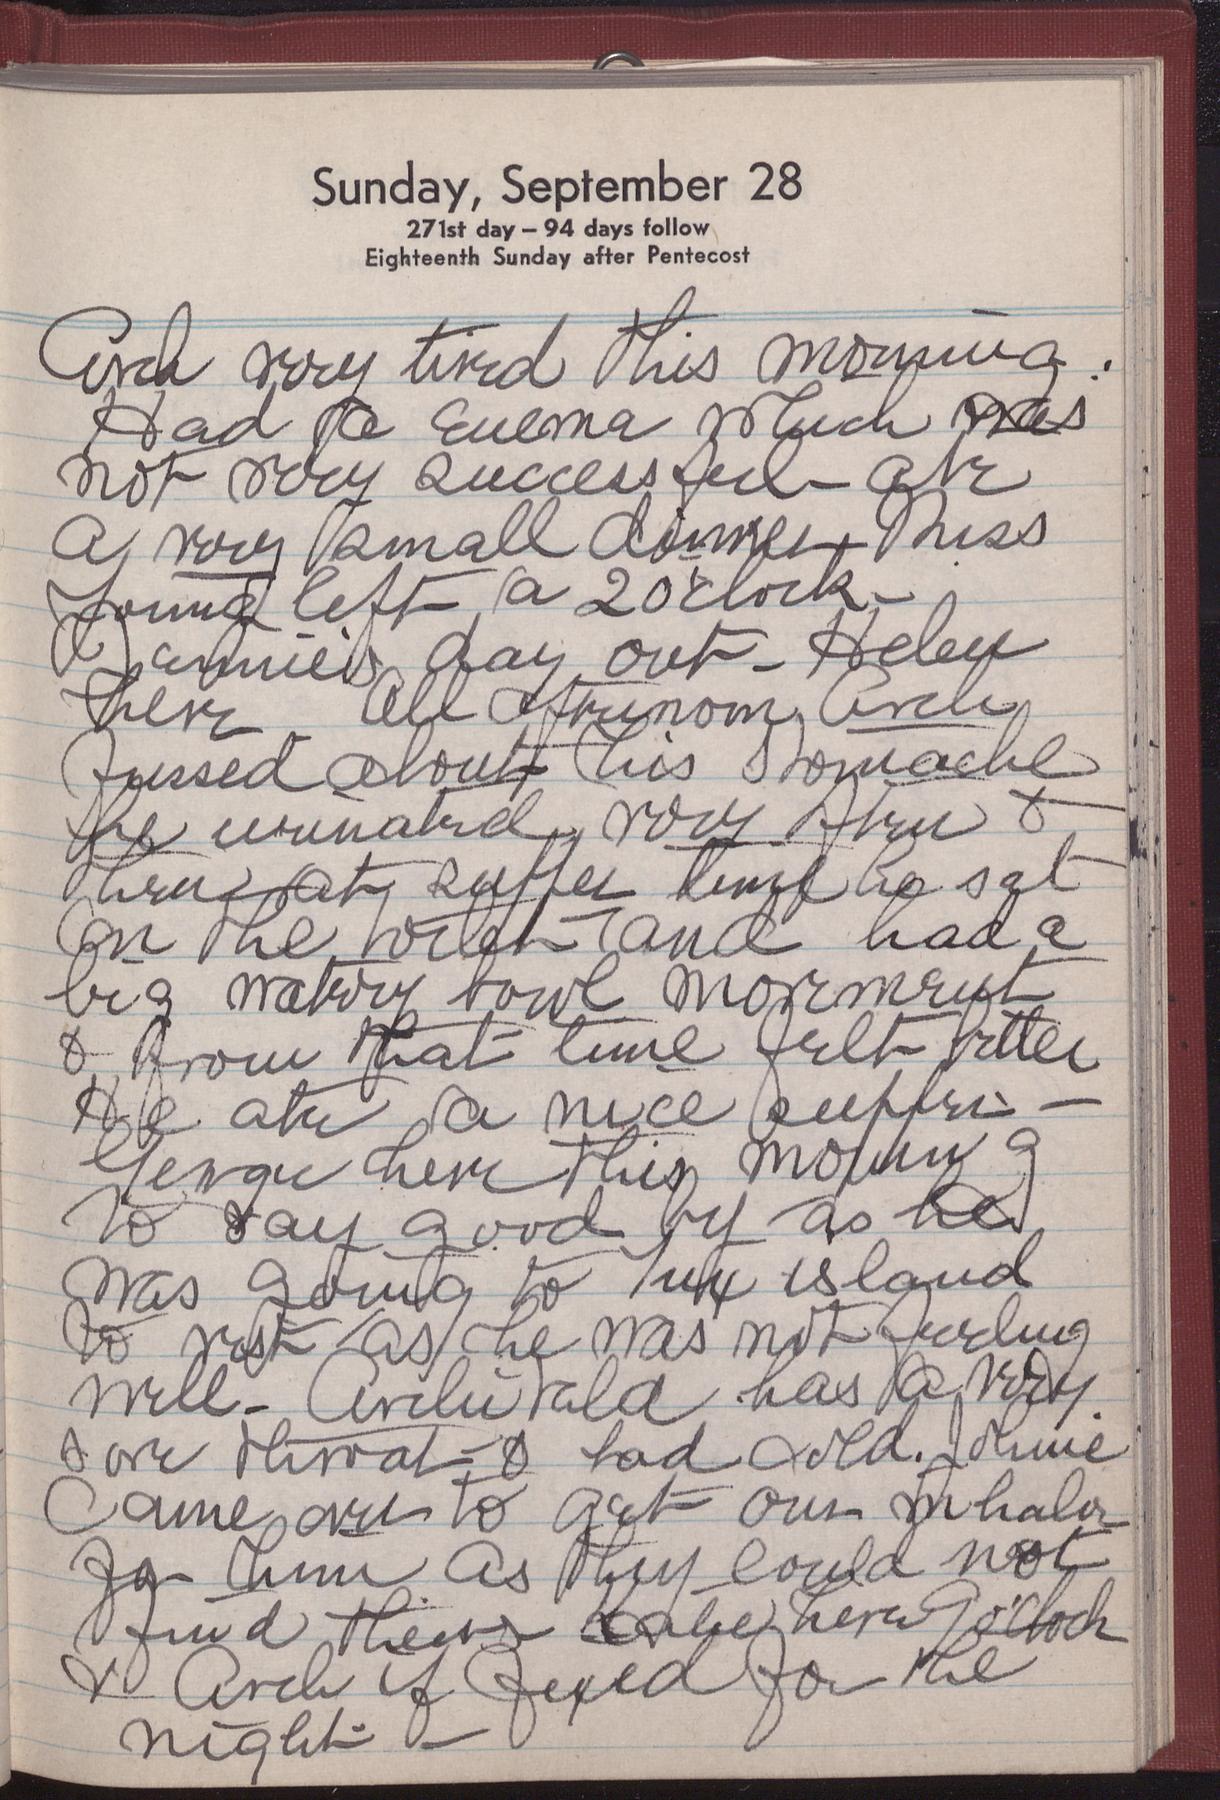 Sunday, September 28
271st day – 94 days follow
Eighteenth Sunday after Pentecost
Arch very tired this morning.
Had a enema which was
not very successful - ate
a very small dinner. Miss
Young left a 2 o'clock -
Jennie's day out - Helen
here all afternoon, Arch
fussed about his stomache
he urinated very often &
then at supper time he sat
on the toilet and had a
big watery bowl movement
& from that time felt better
He ate a nice supper -
George here this morning
to say good by as he
was going to island
to rest as he was not feeling
well - Archibald has a very
sore throat & bad cold. Johnie
Came over to get our inhaler
for him as they could not
find theirs here 9 o'clock
& Arch if fixed for the
night -